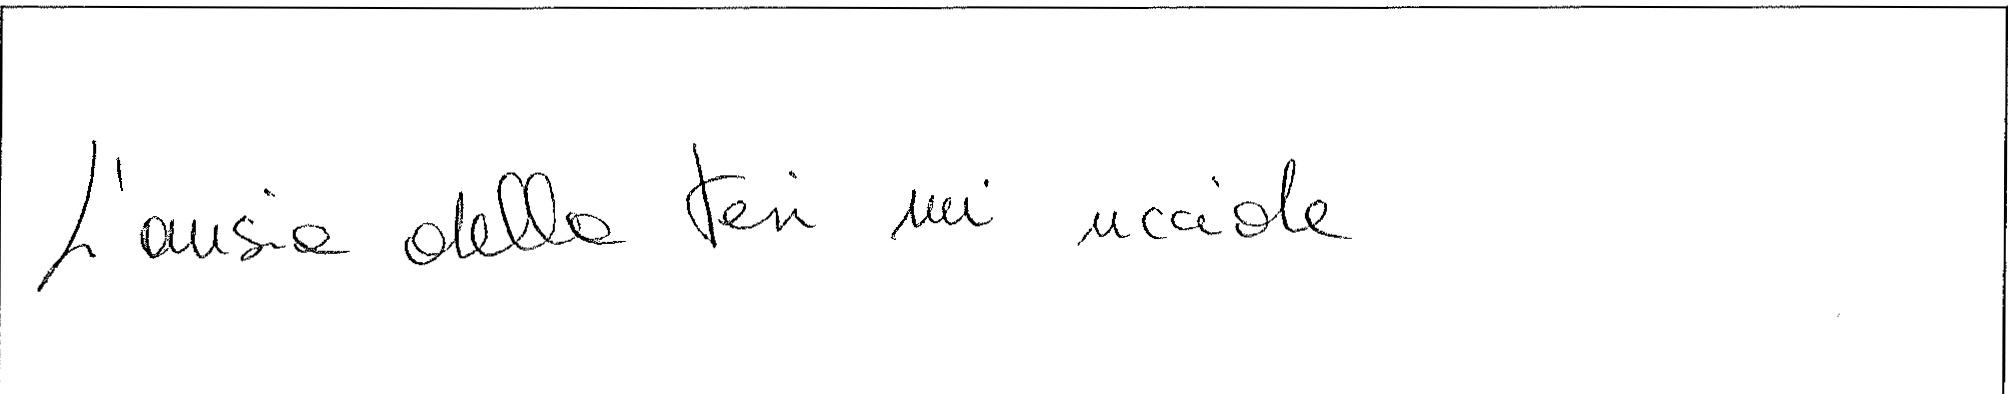 L'ansia della tesi mi uccide